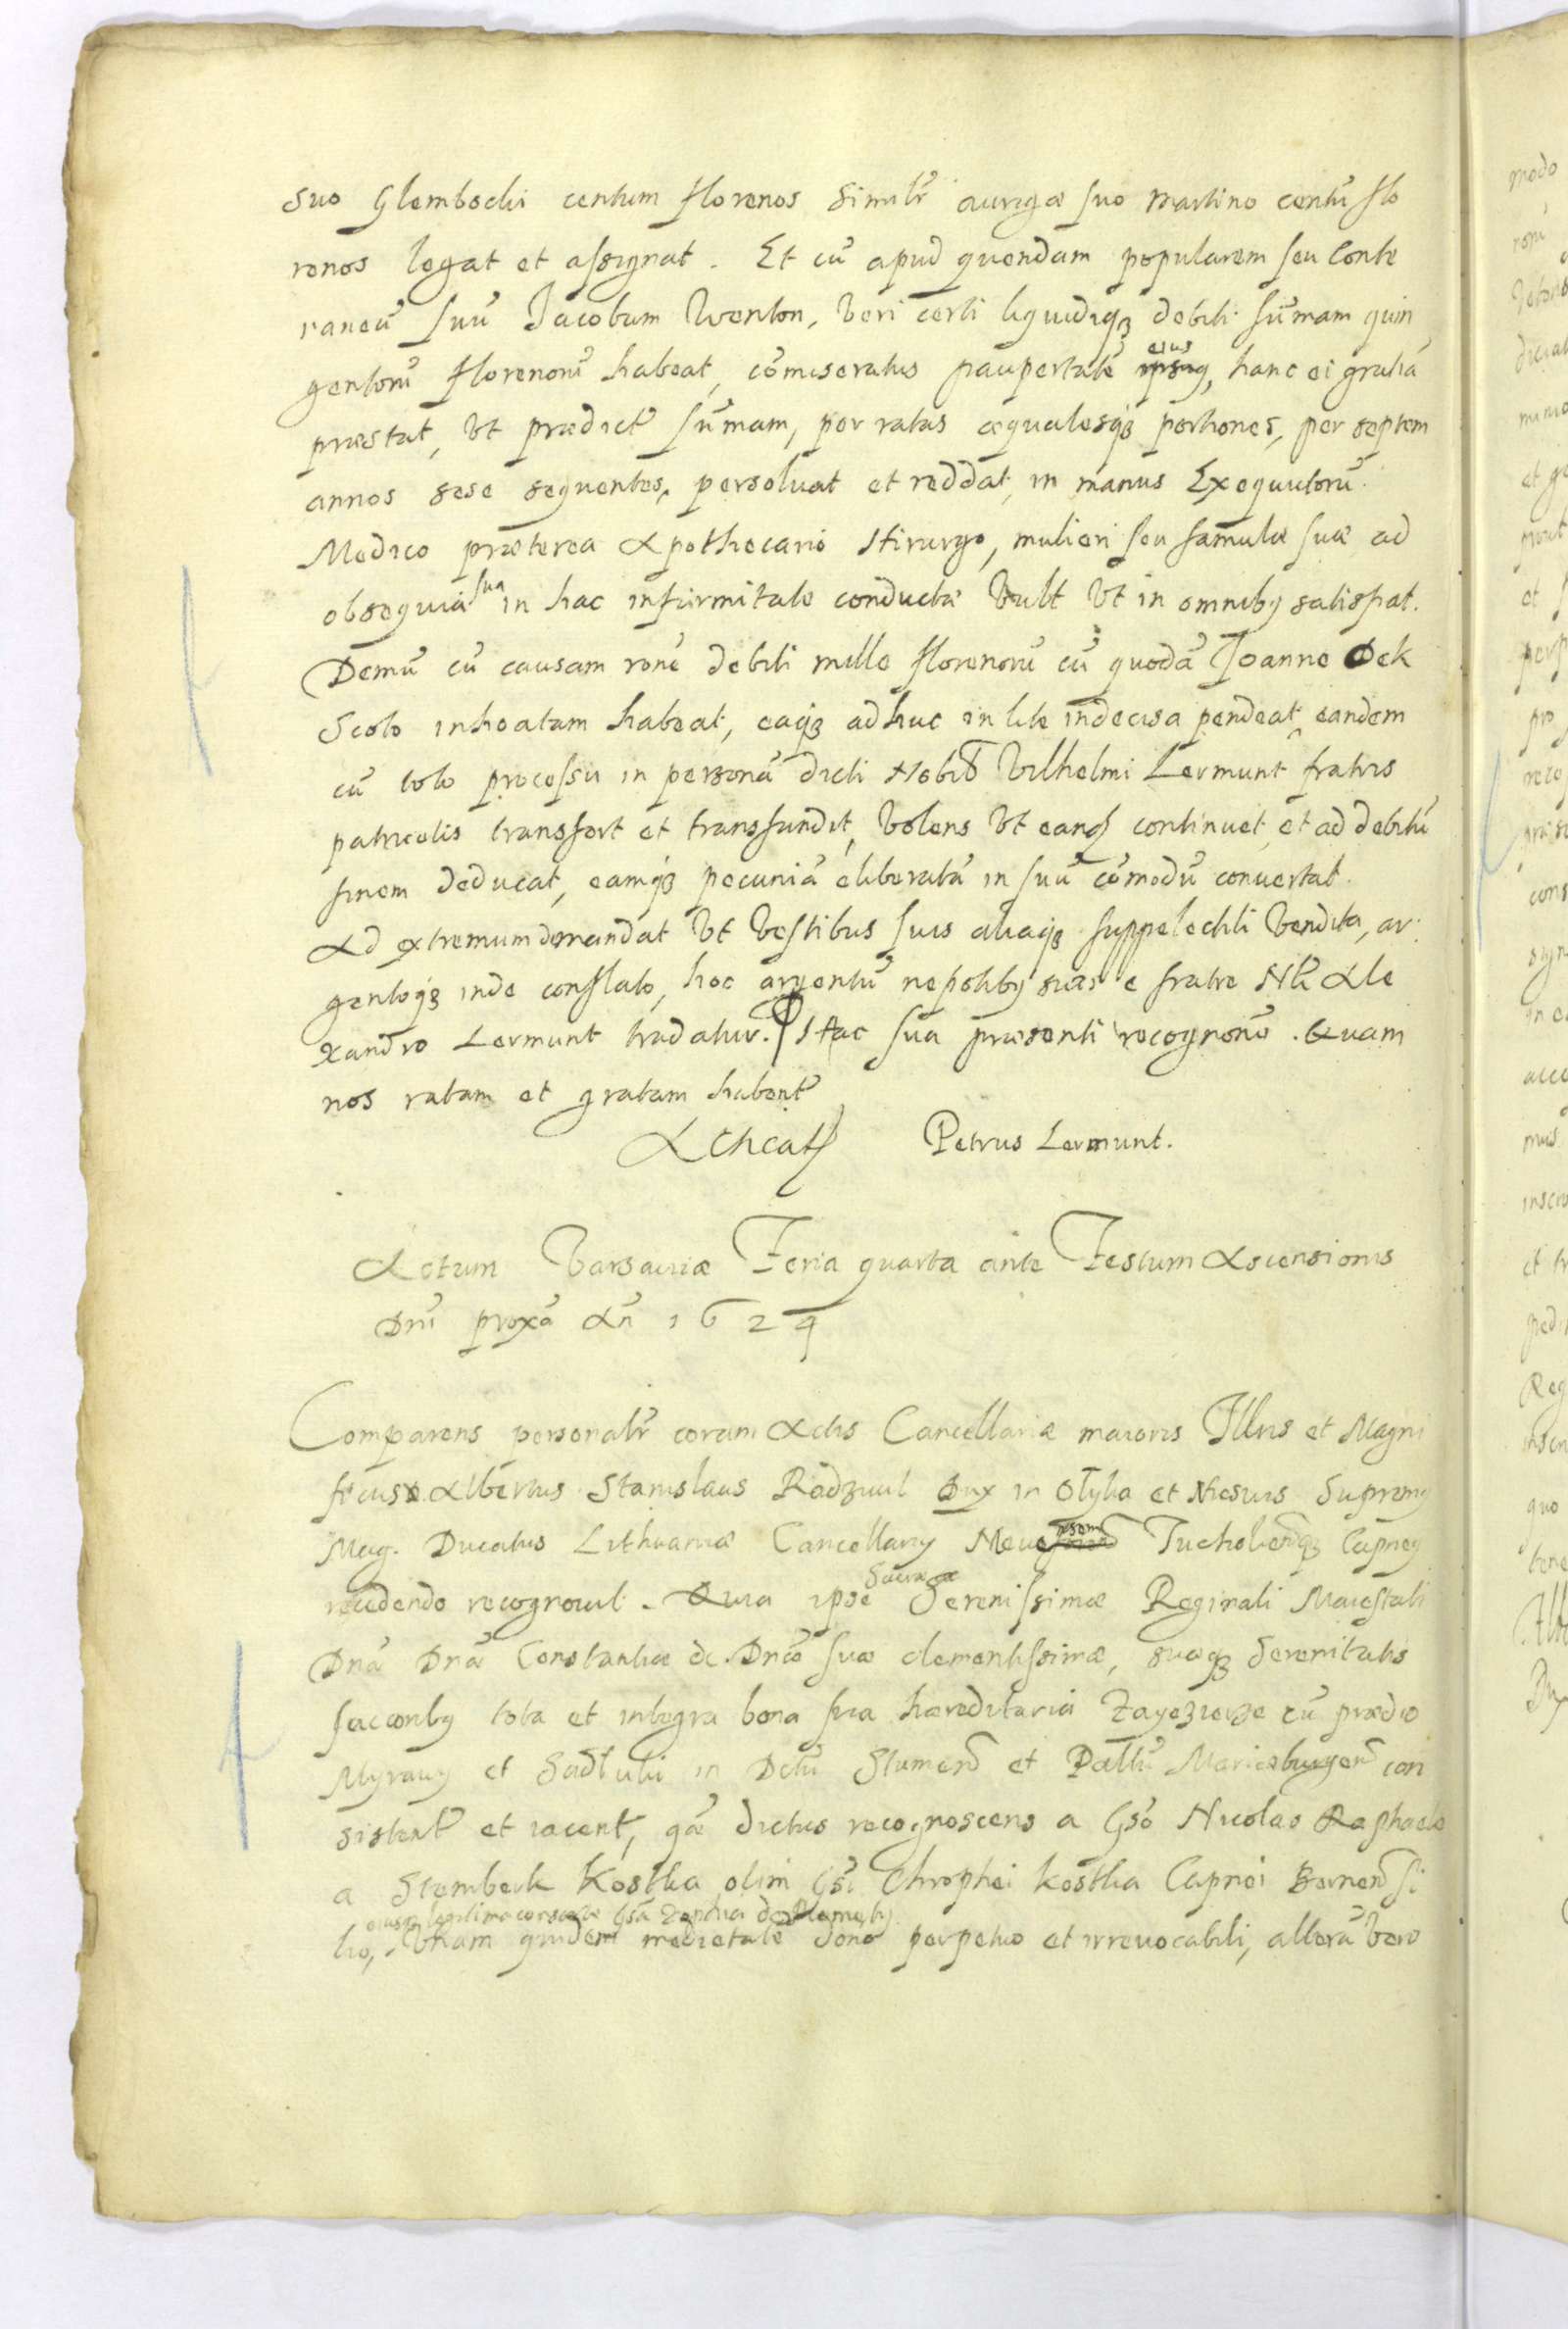 suo Glembocki centum florenos similr aurigæ suo Martino centũ flo
renos legat et assignat. Et cũ apud quendam popularem seu Conte
raneũ suũ Jacobum Wenton, veri certi liquidiqꝫ debiti sũmam quin
gentorũ florenorũ habeat, cõmiseratus paupertatẽ eius, hanc ei gratiã
præstat, Vt prædict sũmam, per ratas æqualesqꝫ portiones, per septem
annos sese sequentes, persoluat et reddat, in manus Exequutorũ.
Medico præterea Apothecario Hirurgo, mulieri seu famulæ suæ ad
obsequia sua in hac infirmitate conductæ Vult Vt in omnibꝰ satisfiat.
Demũ cũ causam rone debiti mille florenorũ cũ quodã Joanne Dek
Scoto inhoatam habeat, eaqꝫ adhuc in lite indecisa pendeat, eandem
cũ toto processu in personã dicti Nobil Vilhelmi Lermunt fratris
patruelis transfert et transfundit, Volens Vt eand continuet, et ad debitũ
finem deducat, eamqꝫ pecuniã eliberatã in suũ cõmodũ conuertat.
Ad extremum demandat Vt Vestibus suis aliaqꝫ suppelectili Vendita, ar
gentoqꝫ inde conflato, hoc argentũ nepotibꝰ suis e fratre Nli Ale
xandro Lermunt tradatur. Hac sua præsenti recognone. Quam
nos ratam et gratam habent
Petrus Lermunt.
Actum Varsauiæ Feria quarta ante Festum Ascensionis
Dni proxã An 1624
Comparens personalr coram Actis Cancellariæ maioris Illris et Magni
ficus Albertus Stanislaus Radziuil Dux in Olyka et Niesuis Supremꝰ
Mag. Ducatus Lithuaniæ Cancellariꝰ Meuensem Tucholienqꝫ Capneꝰ
recedendo recognouit. Quia ipse Sacræ Serenissimæ Reginali Maiestati
Dnã Dnã Constantiæ &c. Dnæ suæ clementissimæ, suæqꝫ Serenitatis
succoribꝰ tota et integra bona sua hæreditaria Zayezierze cũ prædio
Myrany et Sadluki in Dctũ Stumen et Pallũ Marieburgen con
sistent et iacent, quæ dictus recognoscens a Gso Nicolao Raphaele
a Stemberk Kostka olim Gsi Chrophei Kostka Capnei
eiusqꝫ legitima consorte Gsa
lio, Vnam quidem medietatẽ dono perpetuo et irreuocabili, alterã Vero